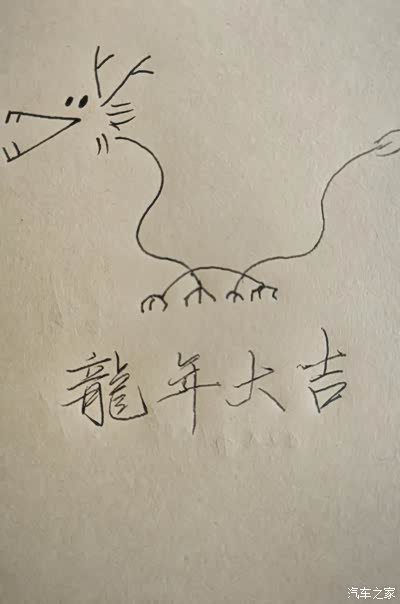 龍年大吉
汽车之家